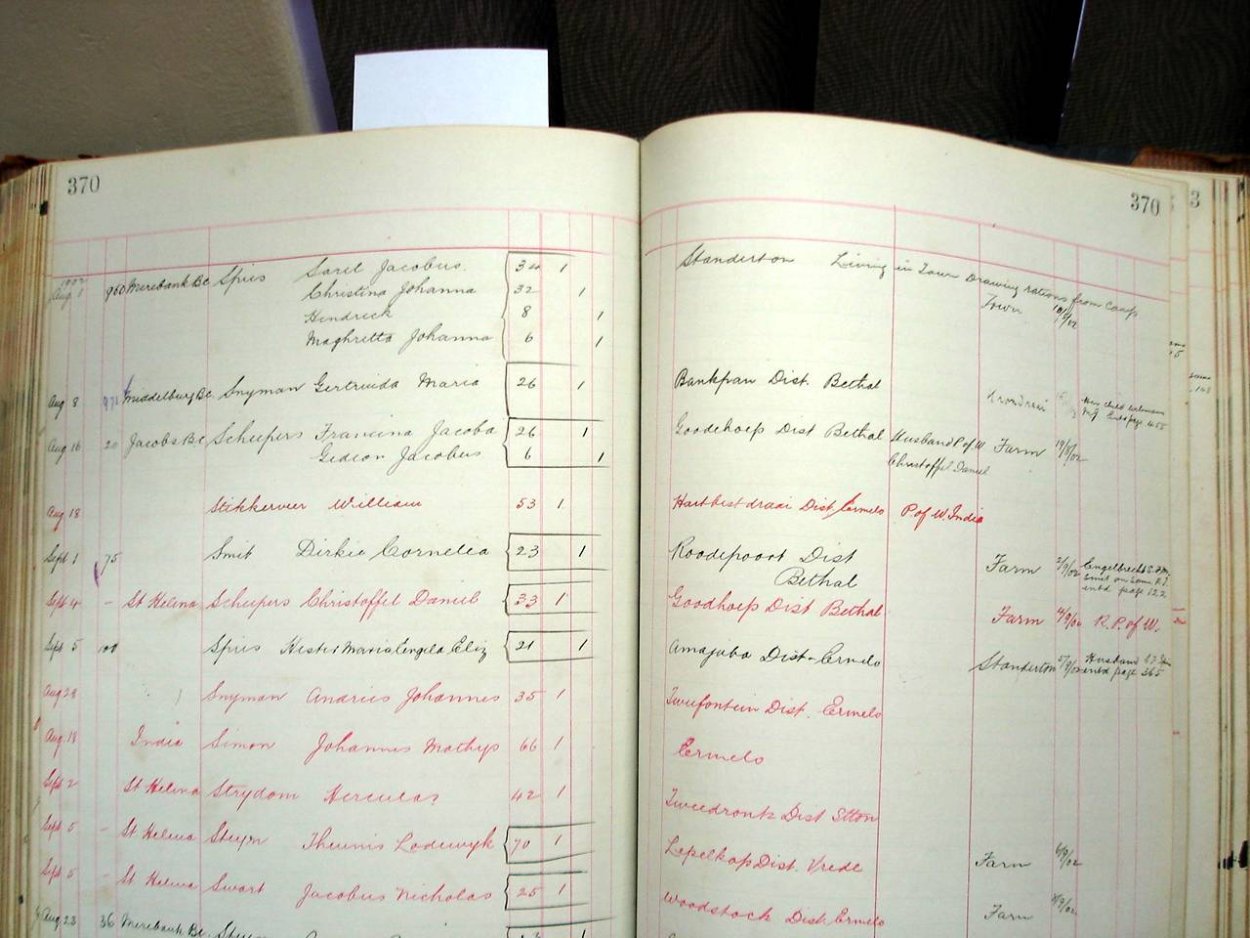 370 370 3
1902
Aug 1 960 Merebank Bc Spies Sarel Jacobus 34 1 Standerton Living in Town Drawing rations from Camp
Christina Johanna 32 1 Town
Hendrick 8 1
Maghretta Johanna 6 1
Aug 8 Middelburg Bc Snyman Gertruida Maria 26 1 Bankpan Dist. Bethal
Aug 16 20 Jacobs Bc Scheepers Francina Jacoba 26 1 Goodehoep Dist Bethal Husband P of W Farm 19/8/02
Gideon Jacobus 6 1 Christoffel Daniel
Aug 18 William 53 1 Hartbistdraai Dist Ermelo P. of W. India
Sept 1 75 Smit Dirkie Cornelea 23 1 Roodepoort Dist Farm 2/9/02
Bethal page 122
Sept 4 - St Helena Scheepers Christoffel Daniel 33 1 Goodhoep Dist Bethal Farm R. P. of W.
Sept 5 100 Spies Hester Maria Engela Eliz 21 1 Amajuba Dist - Ermelo Standerton Husband
page 265
Aug 29 Snyman Andries Johannes 35 1 Twefontein Dist. Ermelo
Aug 18 India Simon Johannes Mathys 66 1 Ermelo
Sept 2 St Helena Strydom Herculas 42 1 Tweedronk Dist Stton
Sept 5 - St Helena Steyn Theunis Lodewyk 70 1 Lepelkop Dist. Vrede Farm 6/9/02
Sept 5 - St Helena Swart Jacobus Nicholas 25 1 Woodstock Dist Ermelo Farm
Aug 23 36 Merebank Bc